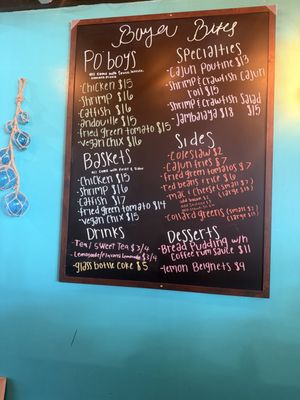 Baya Bites
Po'boys
All come with
-Chicken $15
-Shrimp $16
-Catfish $16
-andouille $15
-fried green tomato $15
-vegan chix $16
Baskets
All come with
-Chicken $15
-Shrimp $16
-Catfish $17
-fried green tomato $14
-vegan chix $15
Drinks
-Tea / Sweet Tea $3/4
$3/4
-glass bottle coke $5
Specialties
-Cajun Poutine $13
-Shrimp & Crawfish Cajun
$15
-Shrimp & Crawfish Salad
$15
-Jambalaya $18
Sides
-Coleslaw $2
-Cajun fries $7
-fried green tomatos $7
-red beans & rice $6
-mac & Cheese (small $7)
(large
-Collard greens (small $2)
(large
Desserts
-Bread Pudding w/h
Coffee rum sauce $11
-lemon Beignets $9